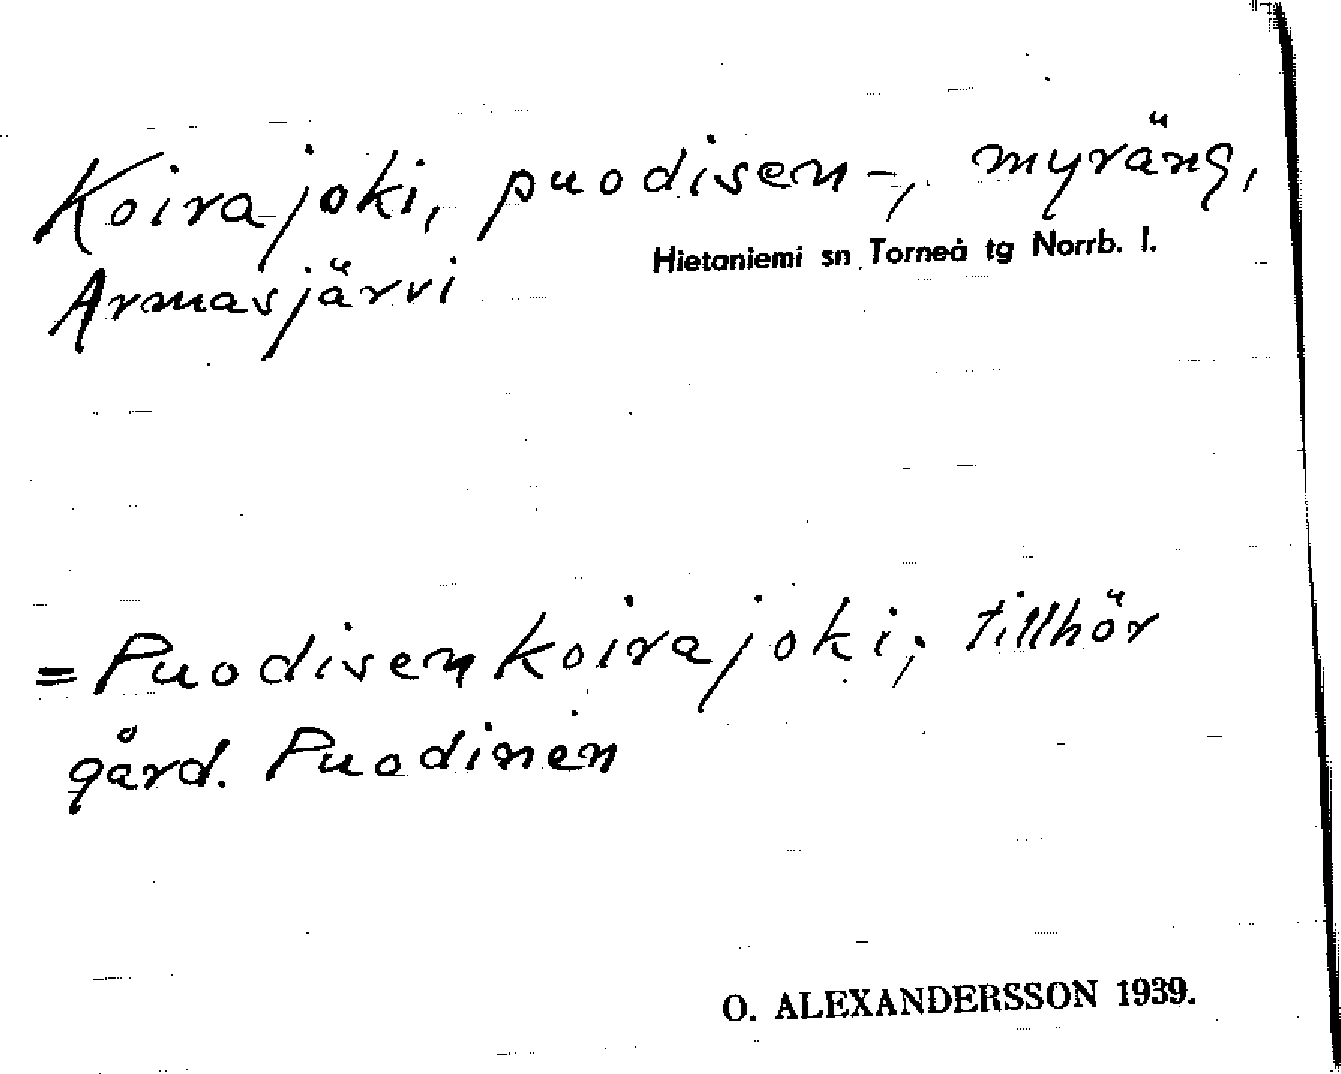 Koirajoki, puodisen-, myräng,
Hietaniemi sn Torneå tg Norrb. l.
Armasjärvi
= Puodisenkoirajoki; tillhör
gård. Puodinen
O. ALEXANDERSSON 1939.